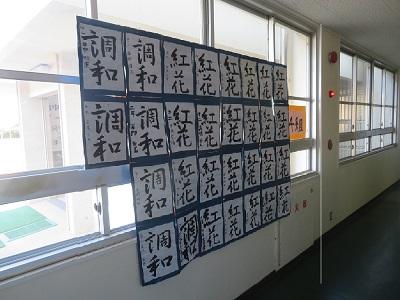 調和 調和 紅花 紅花 紅花 紅花 紅花 紅花
調和 調和 紅花 紅花 紅花 紅花 紅花 紅花
調和 紅花 紅花 紅花 紅花 紅花 紅花
調和 紅花 紅花 紅花 紅花 紅花 紅花